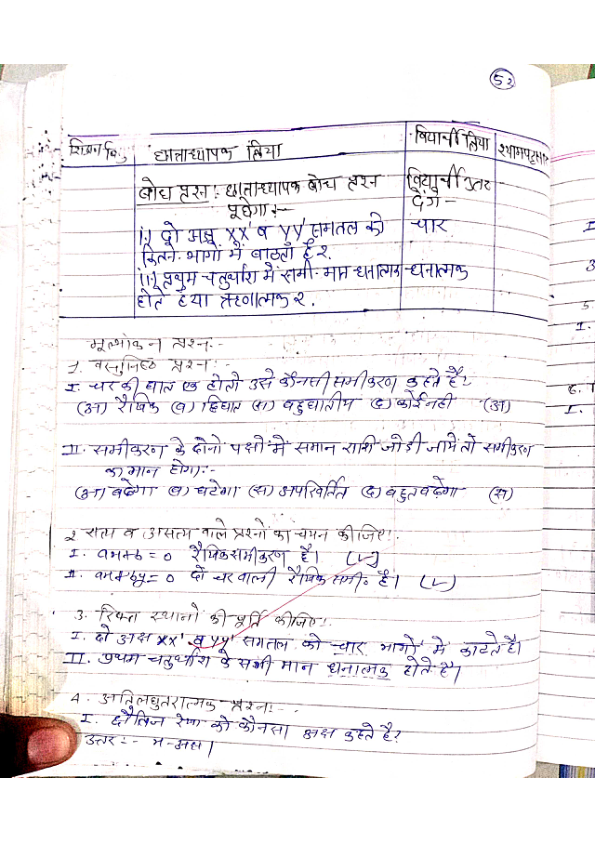 52
शिक्षण बिन्दु छात्राध्यापक क्रिया विद्यार्थी क्रिया श्यामपट्ट
बोध प्रश्न :- छात्राध्यापक बोध प्रश्न विद्यार्थी उत्तर
पूछेगा :- देंगे -
I.) दो अक्ष XX' व YY' समतल को चार
कितने भागों में बांटता है?
II.) प्रथम चतुर्थांश में सभी मान धनात्मक धनात्मक
होते हैं या ऋणात्मक?
मूल्यांकन प्रश्न :-
1. वस्तुनिष्ठ प्रश्न :-
I. चर की घात एक हो तो उसे कौनसी समीकरण कहते हैं?
(अ) रैखिक (ब) द्विघात (स) बहुघातीय (द) कोई नहीं (अ)
II. समीकरण के दोनो पक्षों में समान राशि जोडी जाये तो समीकरण
का मान होगा :-
(अ) बढ़ेगा (ब) घटेगा (स) अपरिवर्तित (द) बहुत बढ़ेगा (स)
2. सत्य व असत्य वाले प्रश्नों का चयन कीजिए :-
I. ax+b=0 रैखिक समीकरण है।
II. ax+by=0 दो चर वाली रैखिक समी॰ है।
3. रिक्त स्थानों की पूर्ति कीजिए :-
I. दो अक्ष XX' व YY' समतल को चार भागों में काटते है।
II. प्रथम चतुर्थांश के सभी मान धनात्मक होते है।
4. अतिलघुतरात्मक प्रश्न :-
I. क्षैतिज रेखा को कौनसा अक्ष कहते है?
उत्तर :- x-अक्ष।